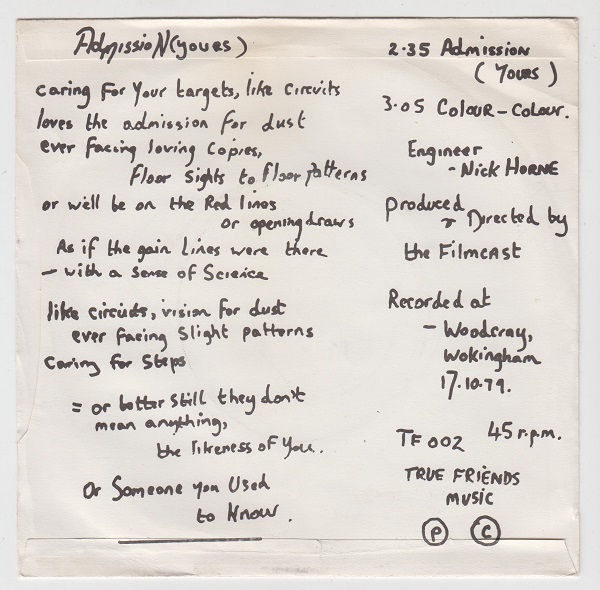 AdmissioN (yours)
caring For Your targets, like circuits
loves the admission for dust
ever facing loving copies,
Floor Sights to Floor patterns
or we'll be on the Red lines
or opening draws
As if the gain Lines were there
- with a sense of Science
like circuits, vision for dust
ever facing slight patterns
Caring for Steps
= or better still they don't
mean anything,
the likeness of You.
Or Someone you Used
to Know.
2.35 Admission
(Yours)
3.05 Colour-Colour.
Engineer
- Nick HORNE
Produced
& Directed by
the Filmcast
Recorded at
- Woodcray,
Wokingham
17.10.79.
TF 002 45 r.p.m.
TRUE FRIENDS
MUSIC
Ⓟ Ⓒ